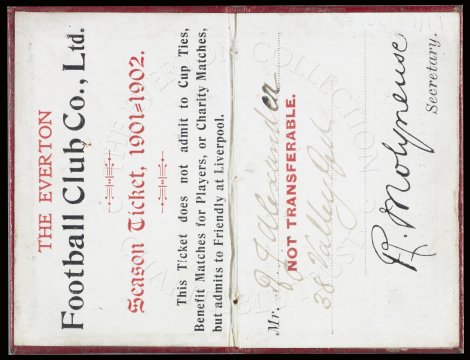 THE EVERTON
Football Club Co., Ltd.
Season Ticket, 1901=1902.
This Ticket does not admit to Cup Ties,
Benefit Matches for Players, or Charity Matches,
but admits to Friendly at Liverpool.
Mr. Alexander
NOT TRANSFERABLE.
38 Valley
R. Molyneuse
Secretary.